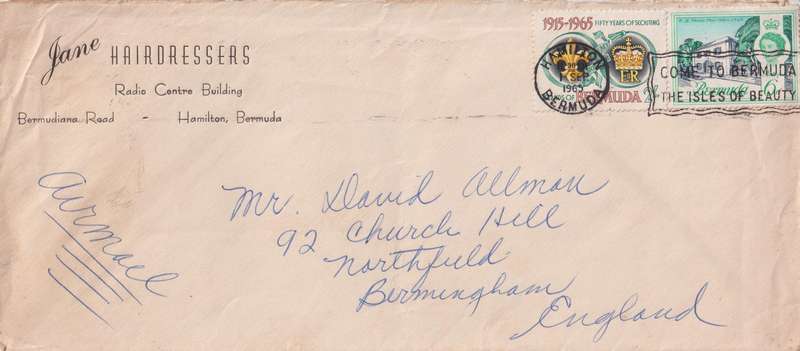 Jane HAIRDRESSERS
Radio Centre Building
Bermudiana Road - Hamilton, Bermuda
1915-1965 FIFTY YEARS OF SCOUTING
E R
BERMUDA
HAMILTON
1965
BERMUDA
Bermuda
COME TO BERMUDA
THE ISLES OF BEAUTY
airmail
Mr. David Allman
92 Church Hill
Northfield
Bermingham
England